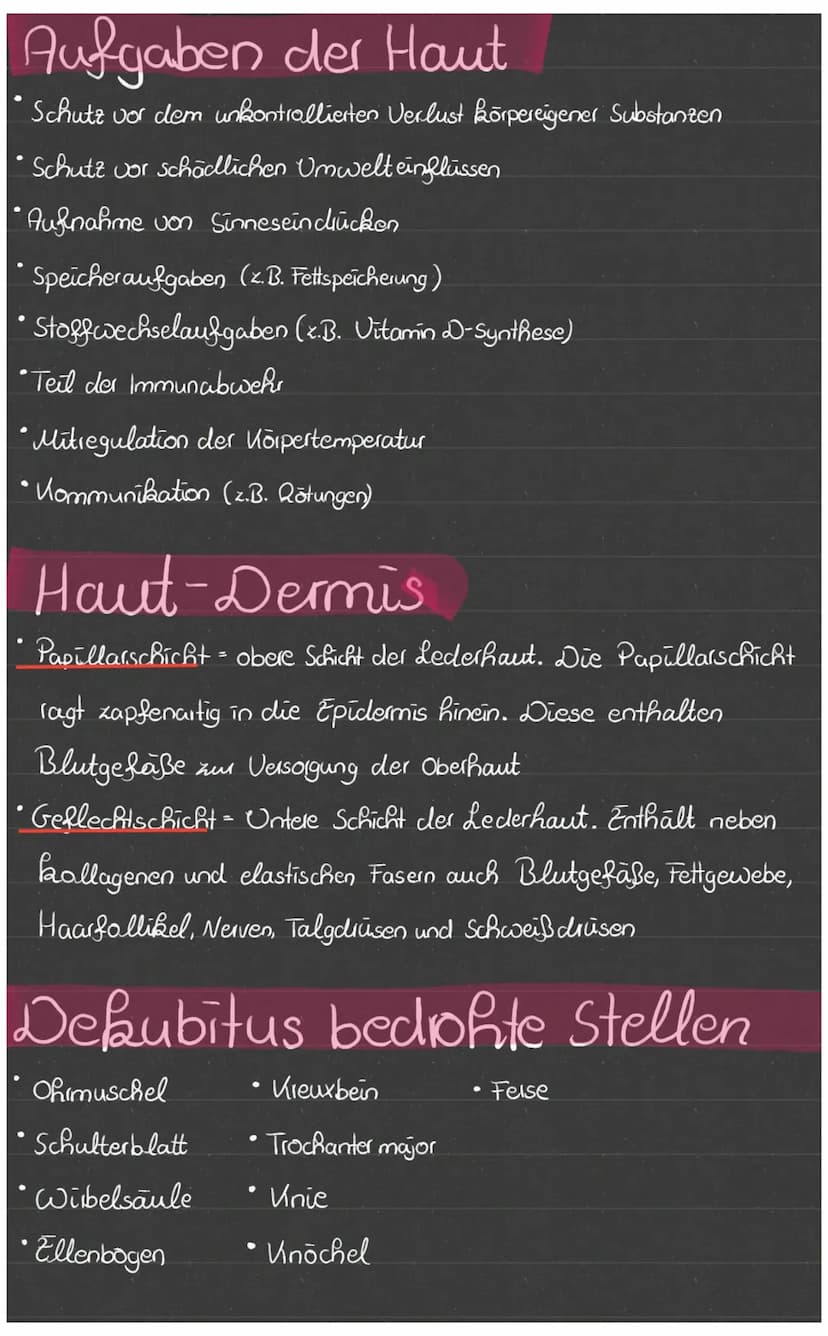 Aufgaben der Haut
• Schutz vor dem unkontrollierten Verlust körpereigener Substanzen
• Schutz vor schädlichen Umwelteinflüssen
• Aufnahme von Sinneseindrücken
• Speicheraufgaben (z.B. Fettspeicherung)
• Stoffwechselaufgaben (z.B. Vitamin D-Synthese)
• Teil der Immunabwehr
• Mitregulation der Körpertemperatur
• Kommunikation (z.B. Rötungen)
Haut-Dermis
• Papillarschicht = obere Schicht der Lederhaut. Die Papillarschicht
ragt zapfenartig in die Epidermis hinein. Diese enthalten
Blutgefäße zur Versorgung der Oberhaut
• Geflechtschicht = Untere Schicht der Lederhaut. Enthält neben
kollagenen und elastischen Fasern auch Blutgefäße, Fettgewebe,
Haarfollikel, Nerven, Talgdrüsen und Schweißdrüsen
Dekubitus bedrohte Stellen
• Ohrmuschel • Kreuzbein • Ferse
• Schulterblatt • Trochanter major
• Wirbelsäule • Knie
• Ellenbogen • Knöchel